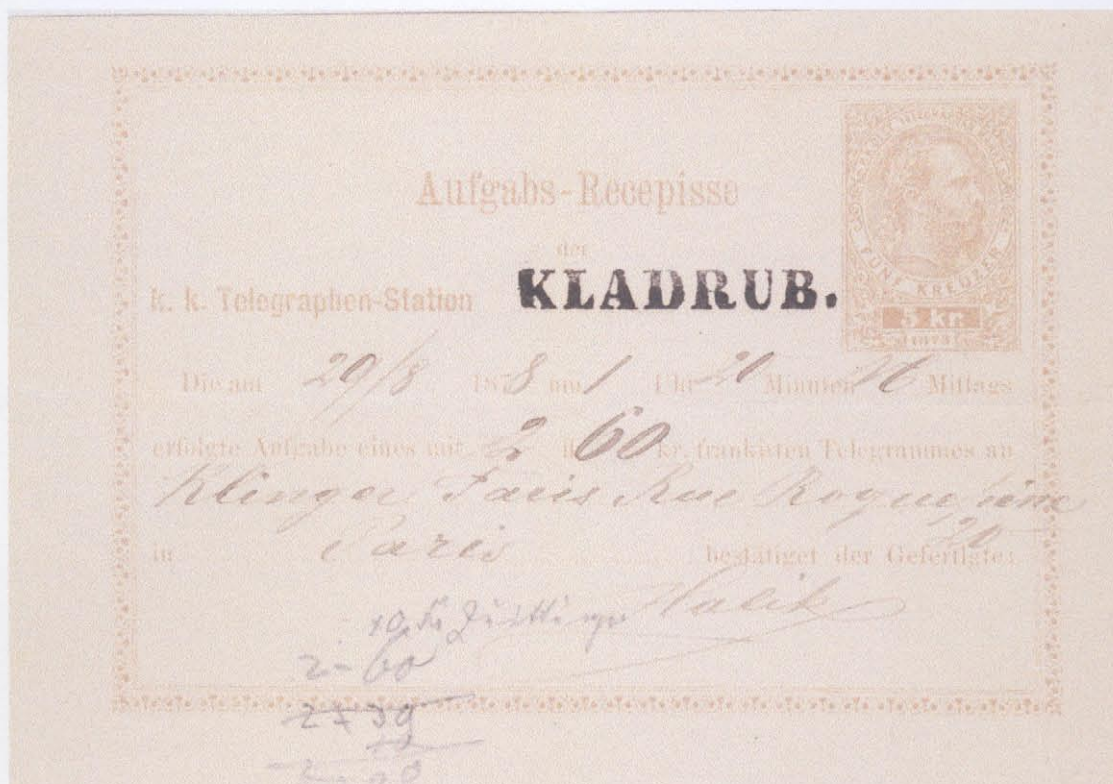 TELEGRAPHEN
Aufgabs-Recepisse
der
k. k. Telegraphen-Station KLADRUB.
FÜNF KREUZER
5 kr.
1873
Die am 29/8 1878 um 1 Uhr 20 Minuten Mittags
erfolgte Aufgabe eines mit 2 fl 60 kr. frankirten Telegrammes an
Klinger, Paris Rue Roquepine
20
in Paris bestätiget der Gefertigte:
Halik
2-60